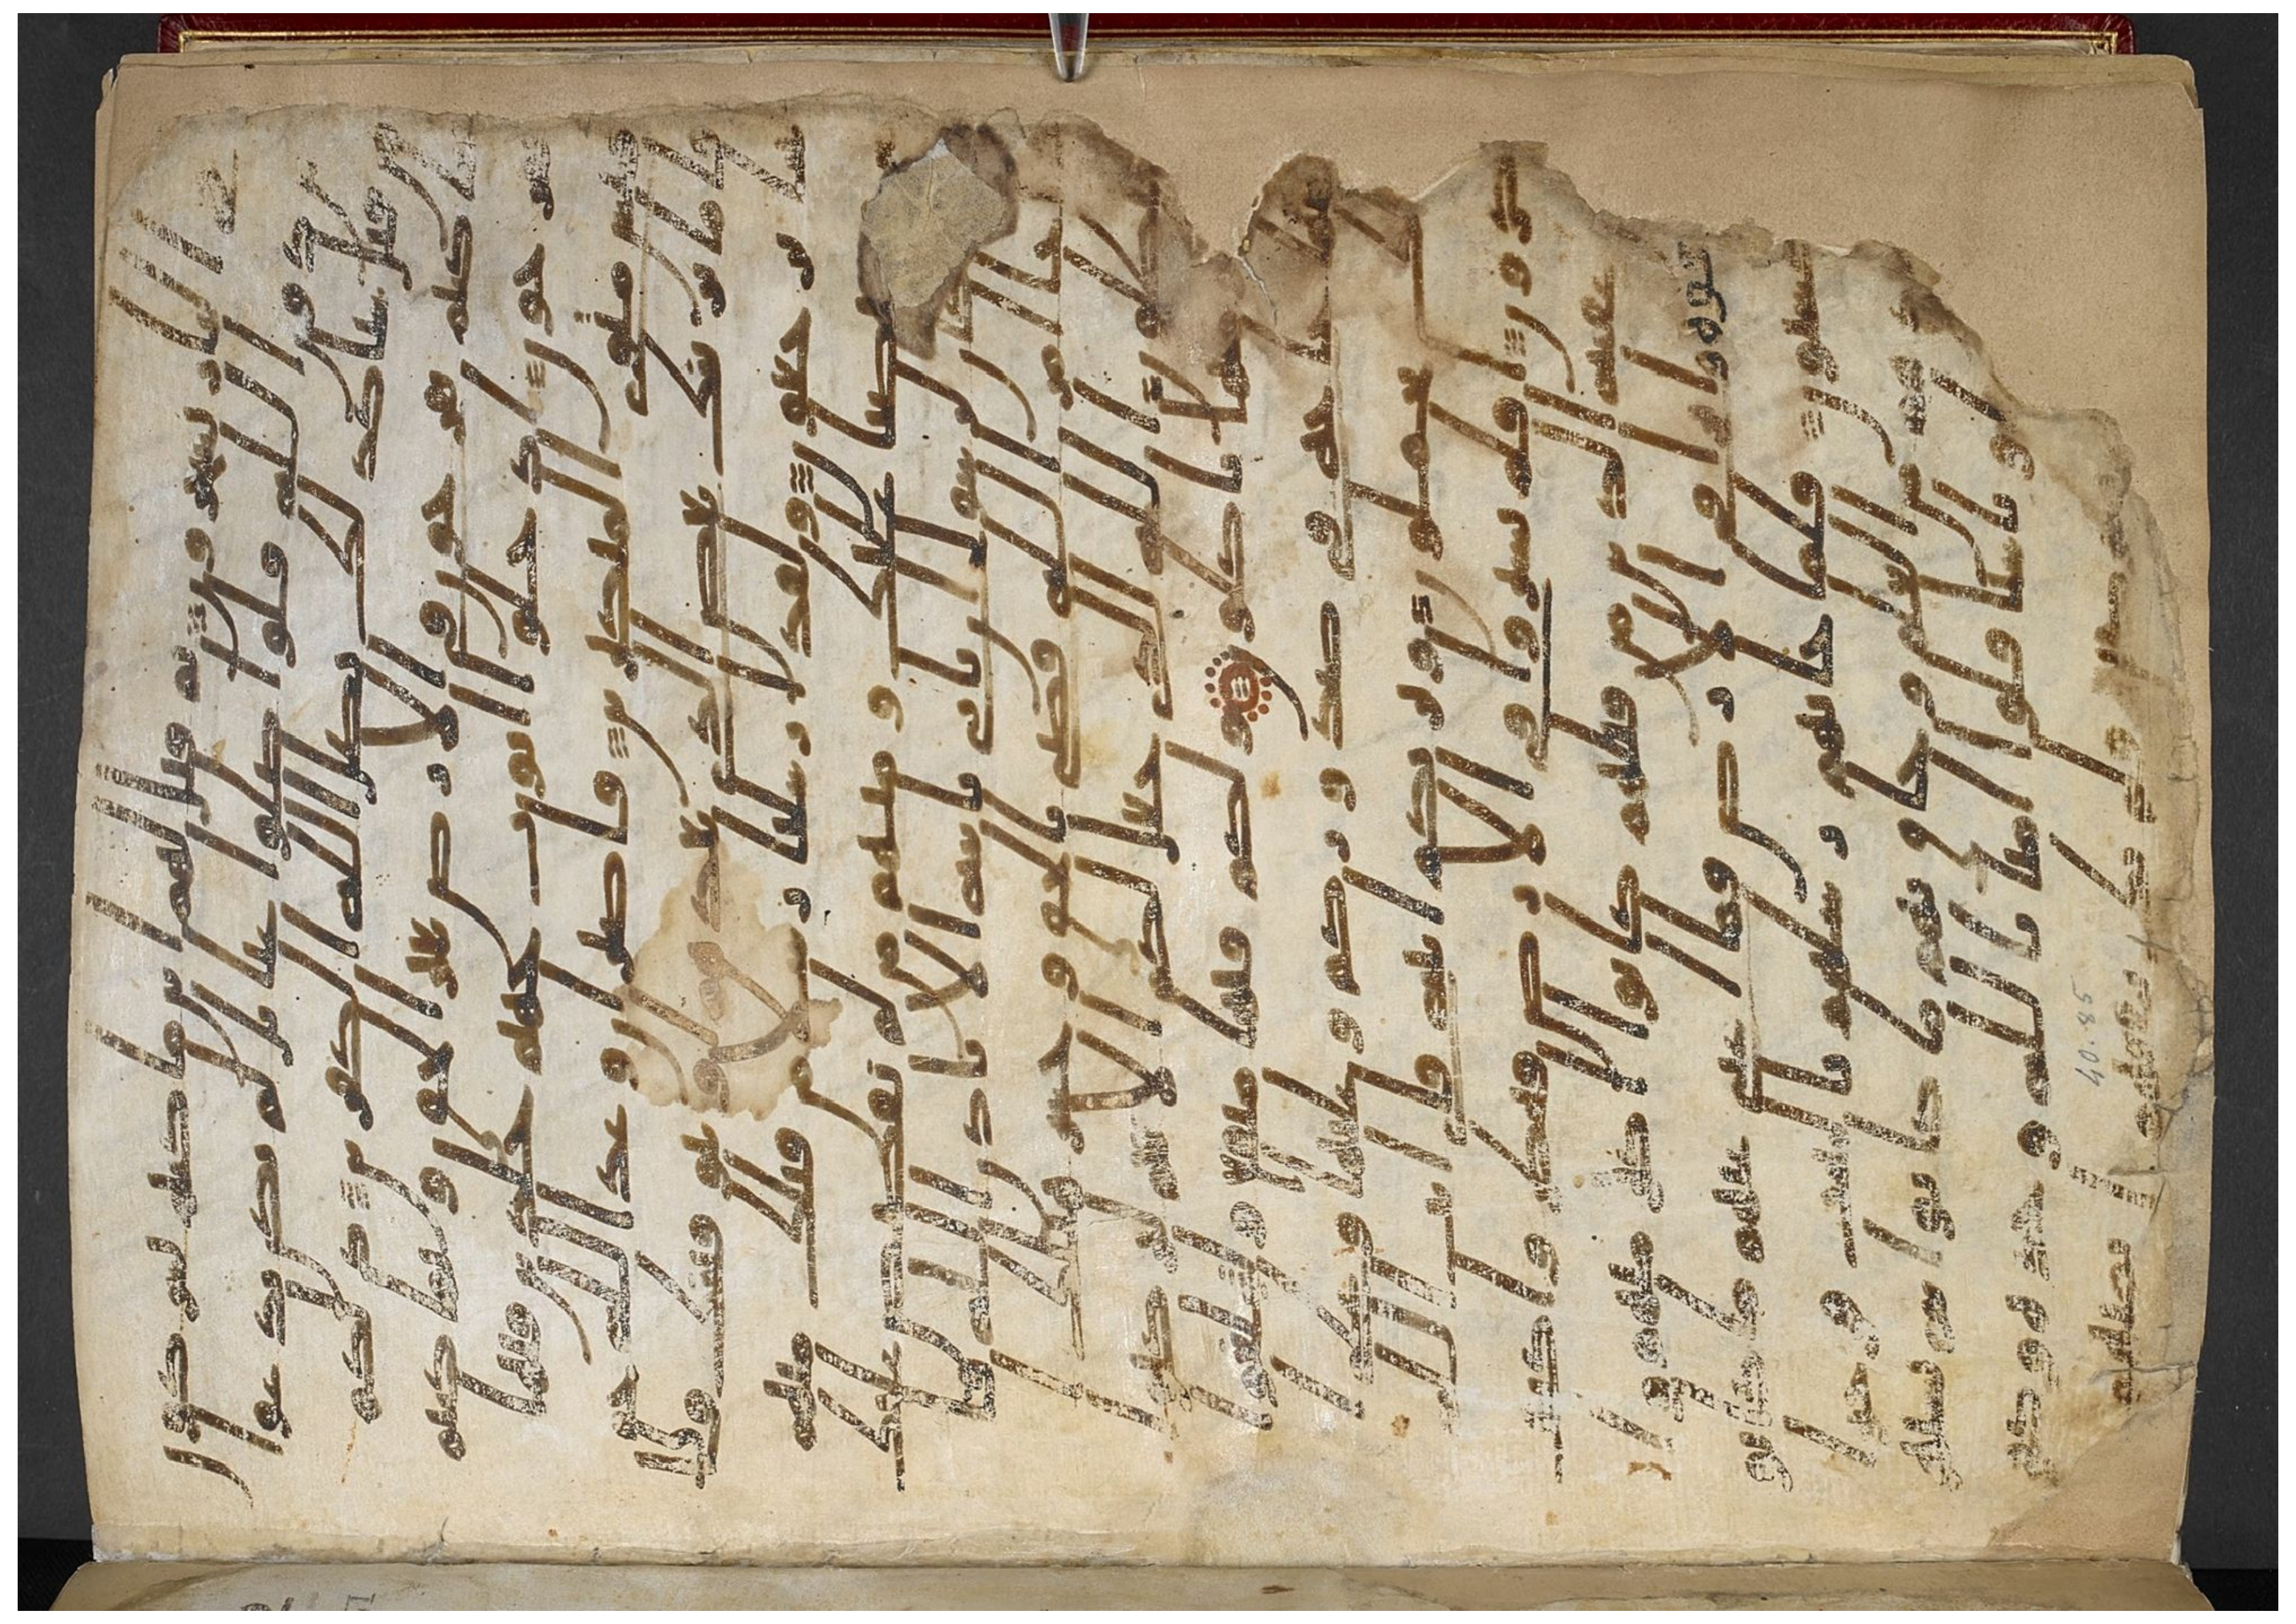 النار يسجرون ثم قيل لهم اين ما كنتم تشركون
من دون الله قالوا ضلوا عنا بل لم نكن ندعوا
من قبل شيا كذلك يضل الله الكفرين ذلكم
بما كنتم تفرحون في الارض بغير الحق وبما كنتم
تمرحون ادخلوا ابوب جهنم خلدين فيها
فبيس مثوى المتكبرين فاصبر ان وعد الله حق
فاما نرينك بعض الذي نعدهم او نتوفينك
فالينا يرجعون ولقد ارسلنا رسلا من قبلك منهم
من قصصنا عليك ومنهم من لم نقصص عليك
وما كان لرسول ان ياتي باية الا باذن الله فاذا
جا امر الله قضي بالحق وخسر هنالك ا
لمبطلون الله الذي جعل لكم الانعم لتركبوا
منها ومنها تاكلون ولكم فيها منفع ولتبلغوا
عليها حاجة في صدوركم وعليها وعلى ا
لفلك تحملون ويريكم ايته فاي ايت الله
تنكرون افلم يسيروا في الارض فينظروا كيف
كان عقبة الذين من قبلهم كانوا اكثر منهم
واشد قوة واثرا في الارض فما اغنى عنهم ما كانوا
يكسبون فلما جاتهم رسلهم بالبينت فرحوا
بما عندهم من العلم وحاق بهم ما كانوا به يستهزون
فلما راوا باسنا قالوا امنا بالله وحده وكفرنا
40.85